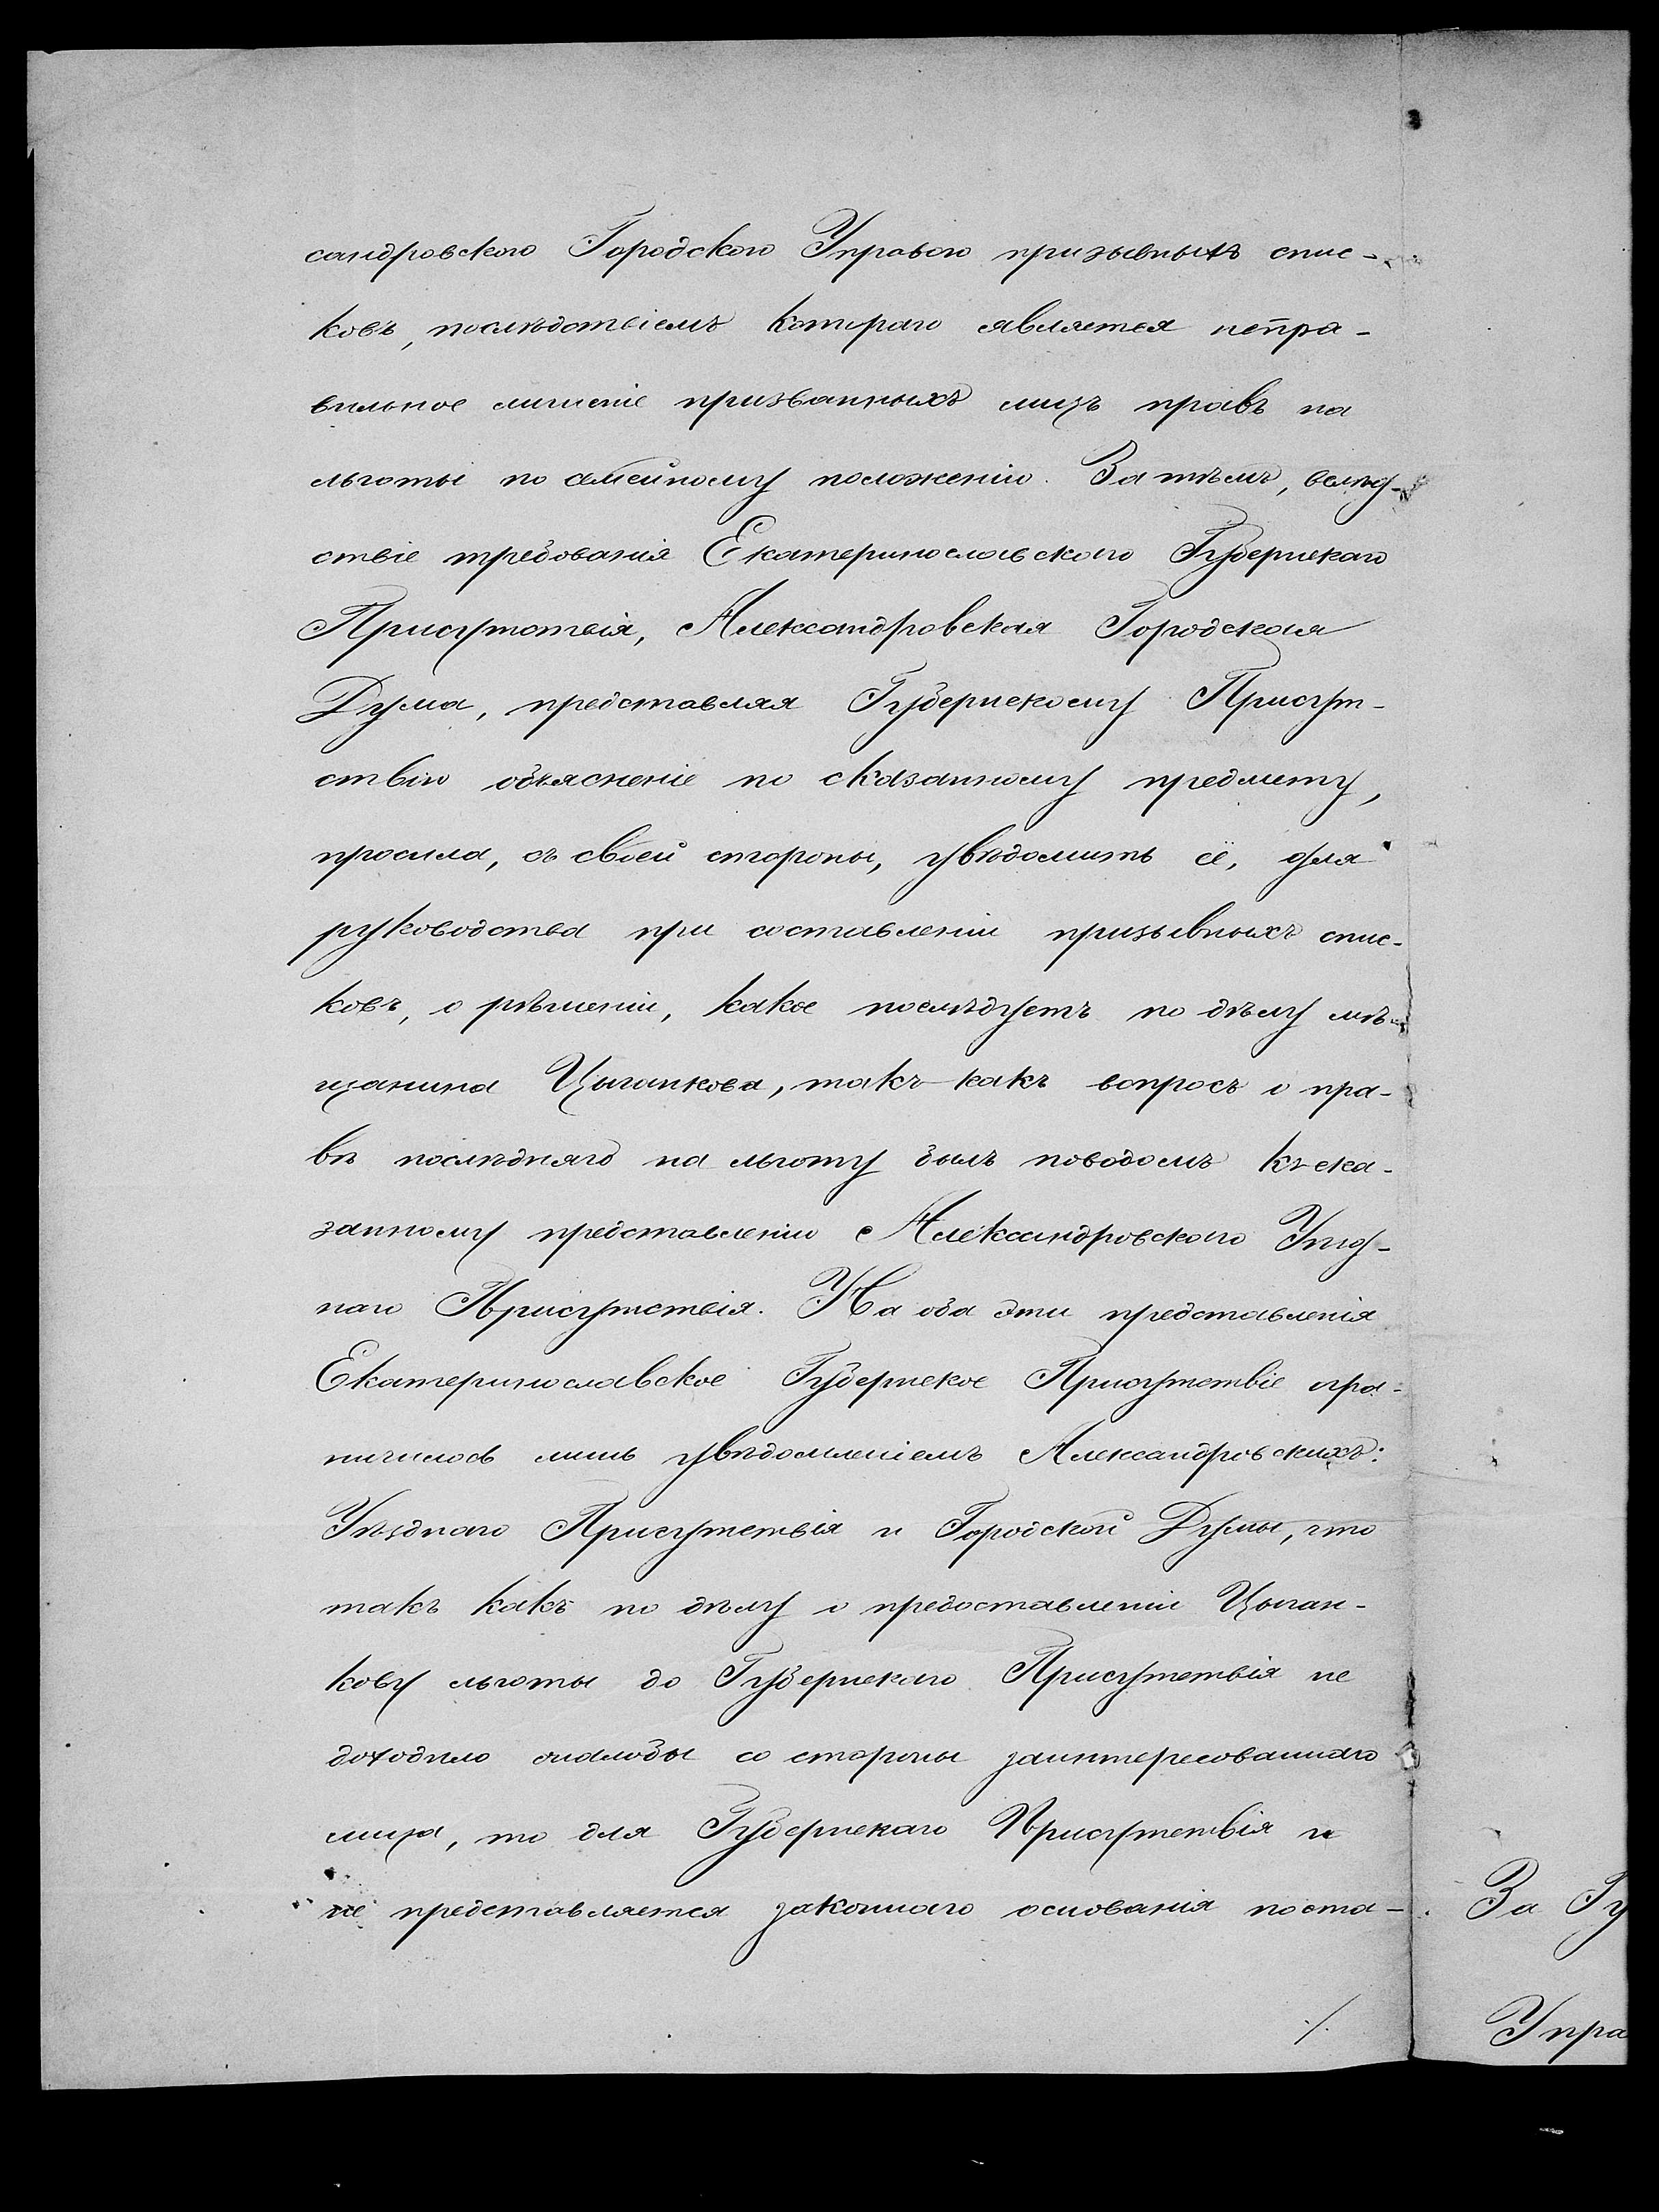 сандровскою Городскою Управою призывныхъ спис-
ковъ, послѣдствіемъ котораго является непра-
вильное лишеніе призванныхъ лицъ правъ на
льготы по семейному положенію. За тѣмъ, вслѣд-
ствіе требованія Екатеринославскаго Губернскаго
Присутствія, Александровская Городская
Дума, представляя Губернскому Присут-
ствію объясненіе по сказанному предмету,
просила, съ своей стороны, увѣдомить её, для
руководства при составленіи призывныхъ спис-
ковъ, о рѣшеніи, какое послѣдуетъ по дѣлу мѣ-
щанина Цыганкова, такъ-какъ вопросъ о пра-
вѣ послѣдняго на льготу былъ поводомъ къ ска-
занному представленію Александровскаго Уѣзд-
наго Присутствія. На оба эти представленія
Екатеринославское Губернское Присутствіе огра-
ничилось лишь увѣдомленіемъ Александровскихъ:
Уѣзднаго Присутствія и Городской Думы, что
такъ какъ по дѣлу о предоставленіи Цыган-
кову льготы до Губернскаго Присутствія не
доходило жалобы со стороны заинтересованнаго
лица, то для Губернскаго Присутствія и
не представляется законнаго основанія поста-
./.
За Гу
Упра